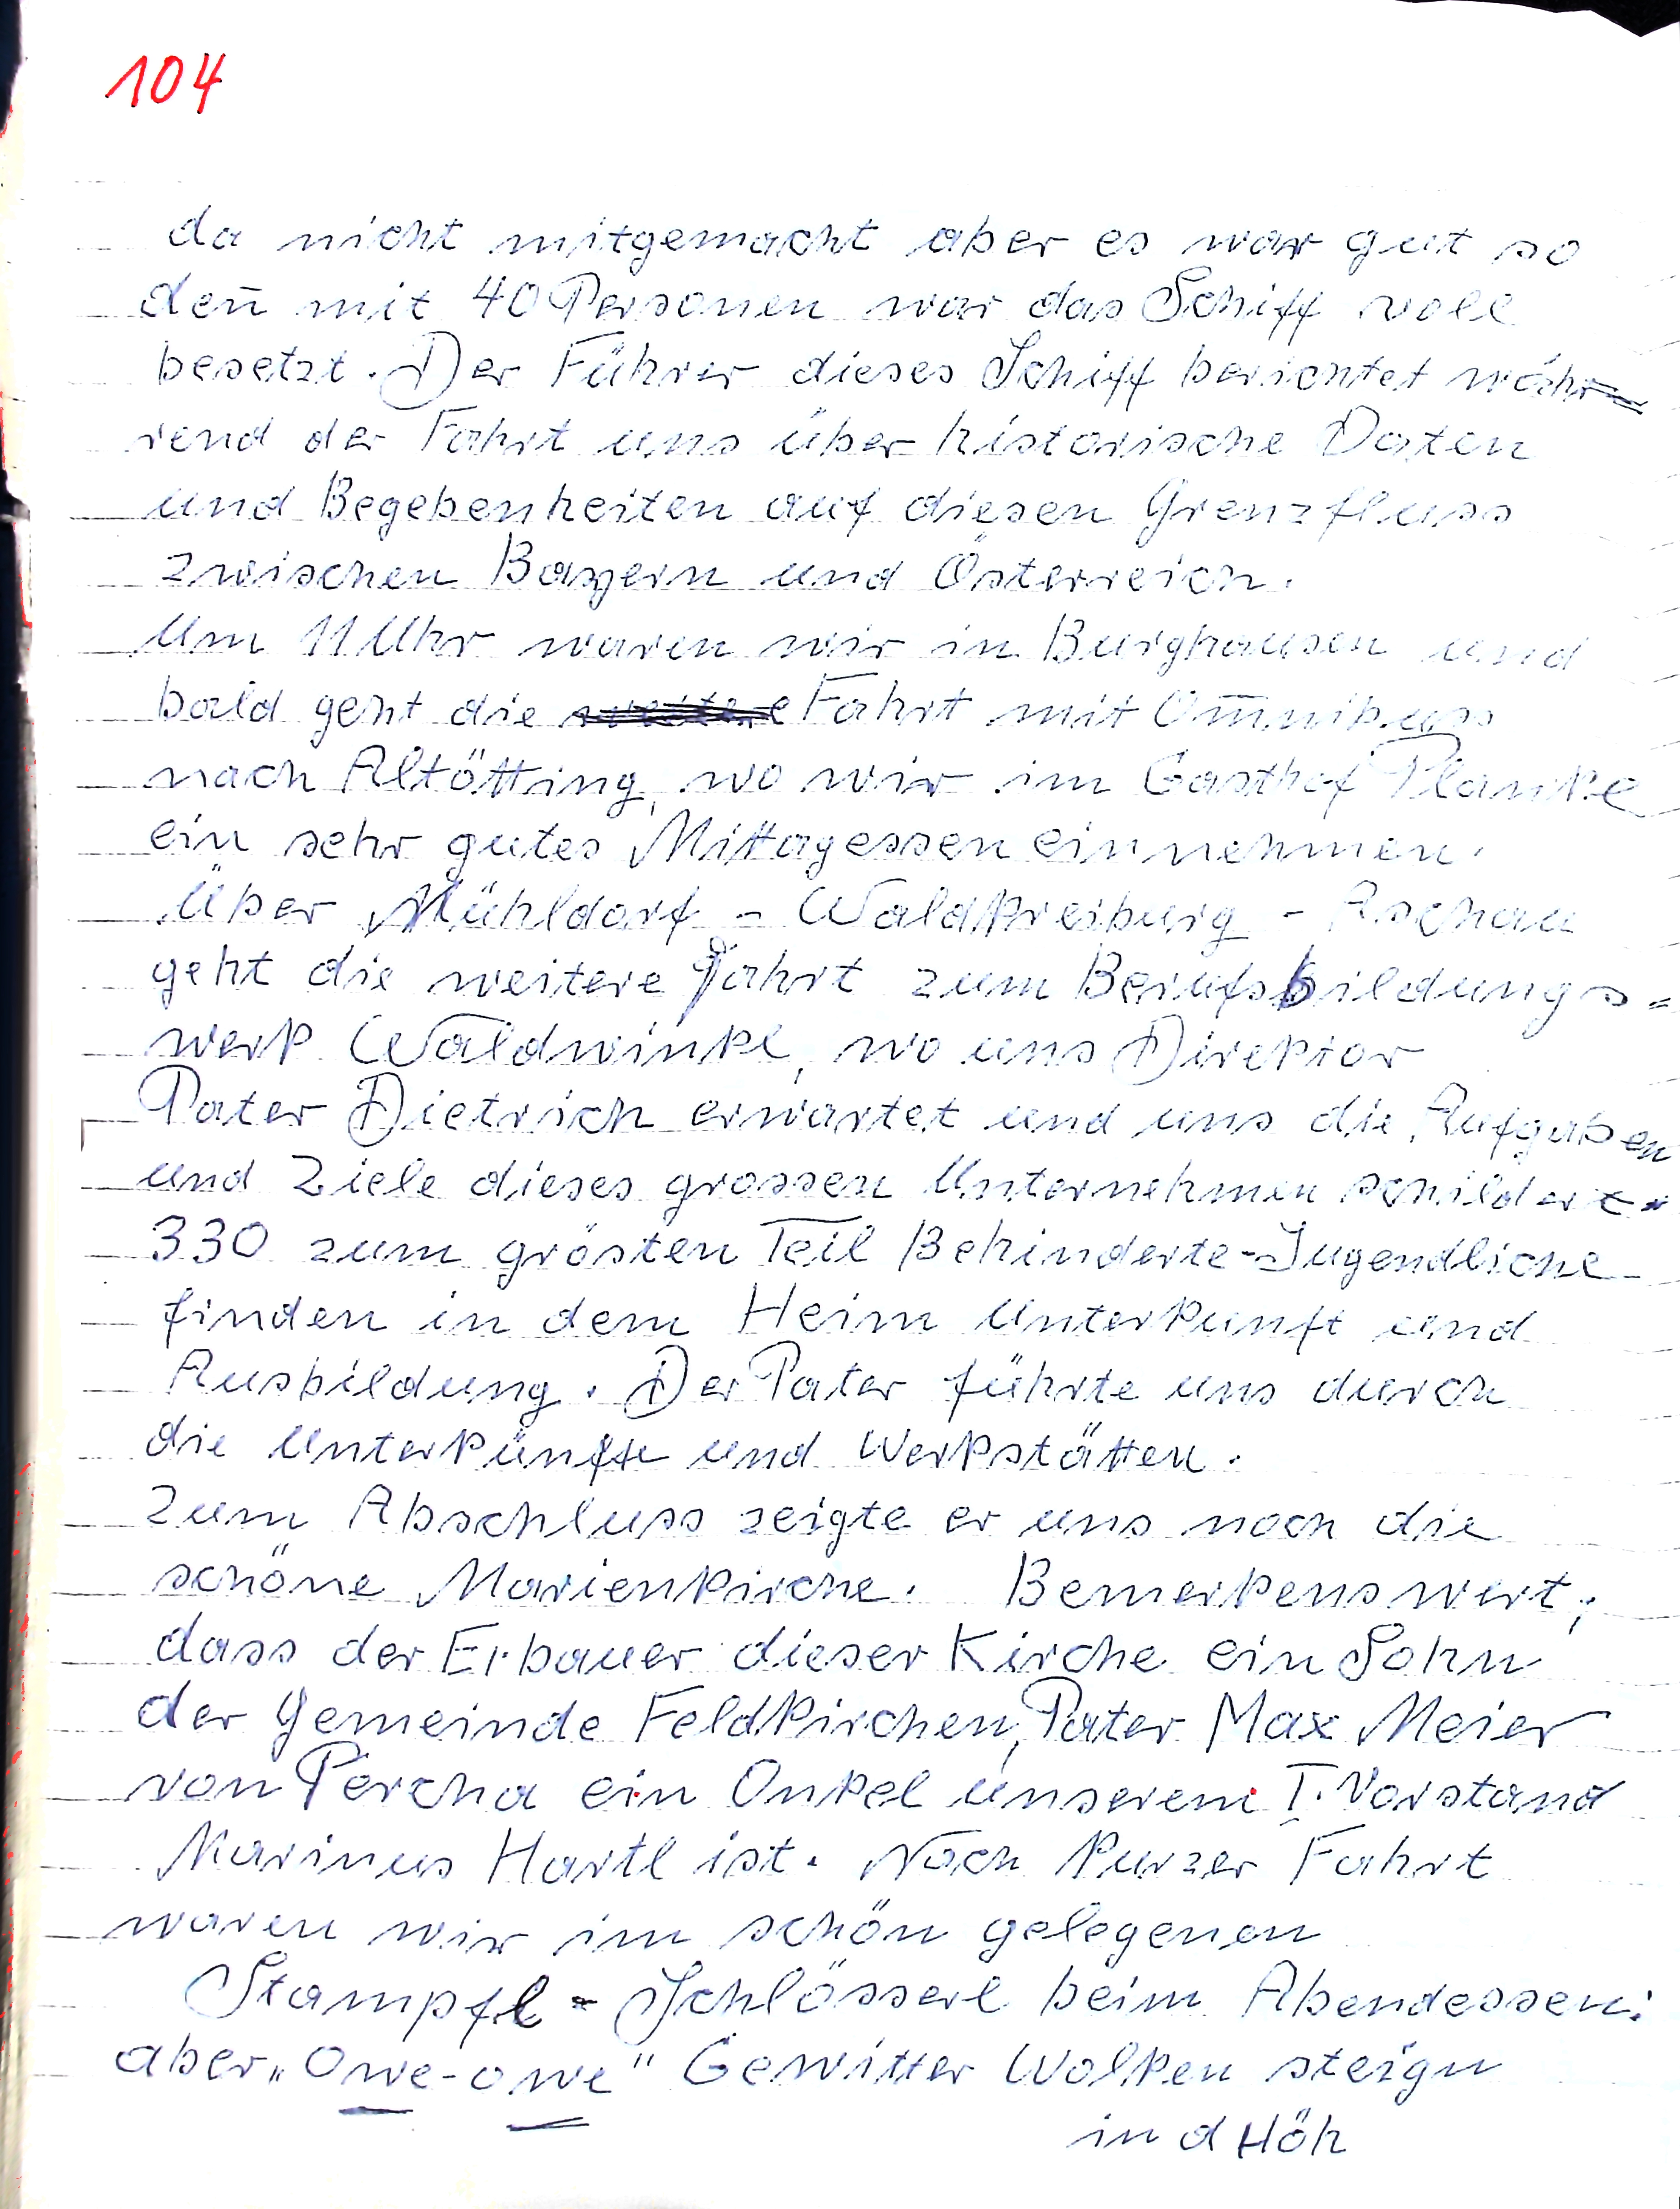 104
da nicht mitgemacht aber es war gut so
den̄ mit 40 Personen war das Schiff voll
besetzt. Der Führer dieses Schiff berichtet wäh=
rend der Fahrt uns über historische Daten
und Begebenheiten auf diesen Grenzfluss
zwischen Bayern und Österreich.
Um 11 Uhr waren wir in Burghausen und
bald geht die ~~weitere~~ Fahrt mit Om̄nibuss
nach Altötting, wo wir im Gasthof Planke
ein sehr gutes Mittagessen einnehmen.
Über Mühldorf - Waldkreiburg - Aschau
geht die weitere Fahrt zum Berufsbildungs=
werk Waldwinkl, wo uns Direktor
Pater Dietrich erwartet und uns die Aufgaben
und Ziele dieses grossen Unternehmen schildert.
330 zum grösten Teil Behinderte-Jugendliche
finden in dem Heim Unterkunft und
Ausbildung. Der Pater führte uns durch
die Unterkünfte und Werkstätten.
Zum Abschluss zeigte er uns noch die
schöne Marienkirche. Bemerkenswert,
dass der Erbauer dieser Kirche ein Sohn
der Gemeinde Feldkirchen, Pater Max Meier
von Percha ein Onkel unserem I. Vorstand
Marinus Hartl ist. Nach kurzer Fahrt
waren wir im schön gelegenen
Stampfl - Schlösserl beim Abendessen.
aber „Owe-owe" Gewitter Wolken steign
in d Höh